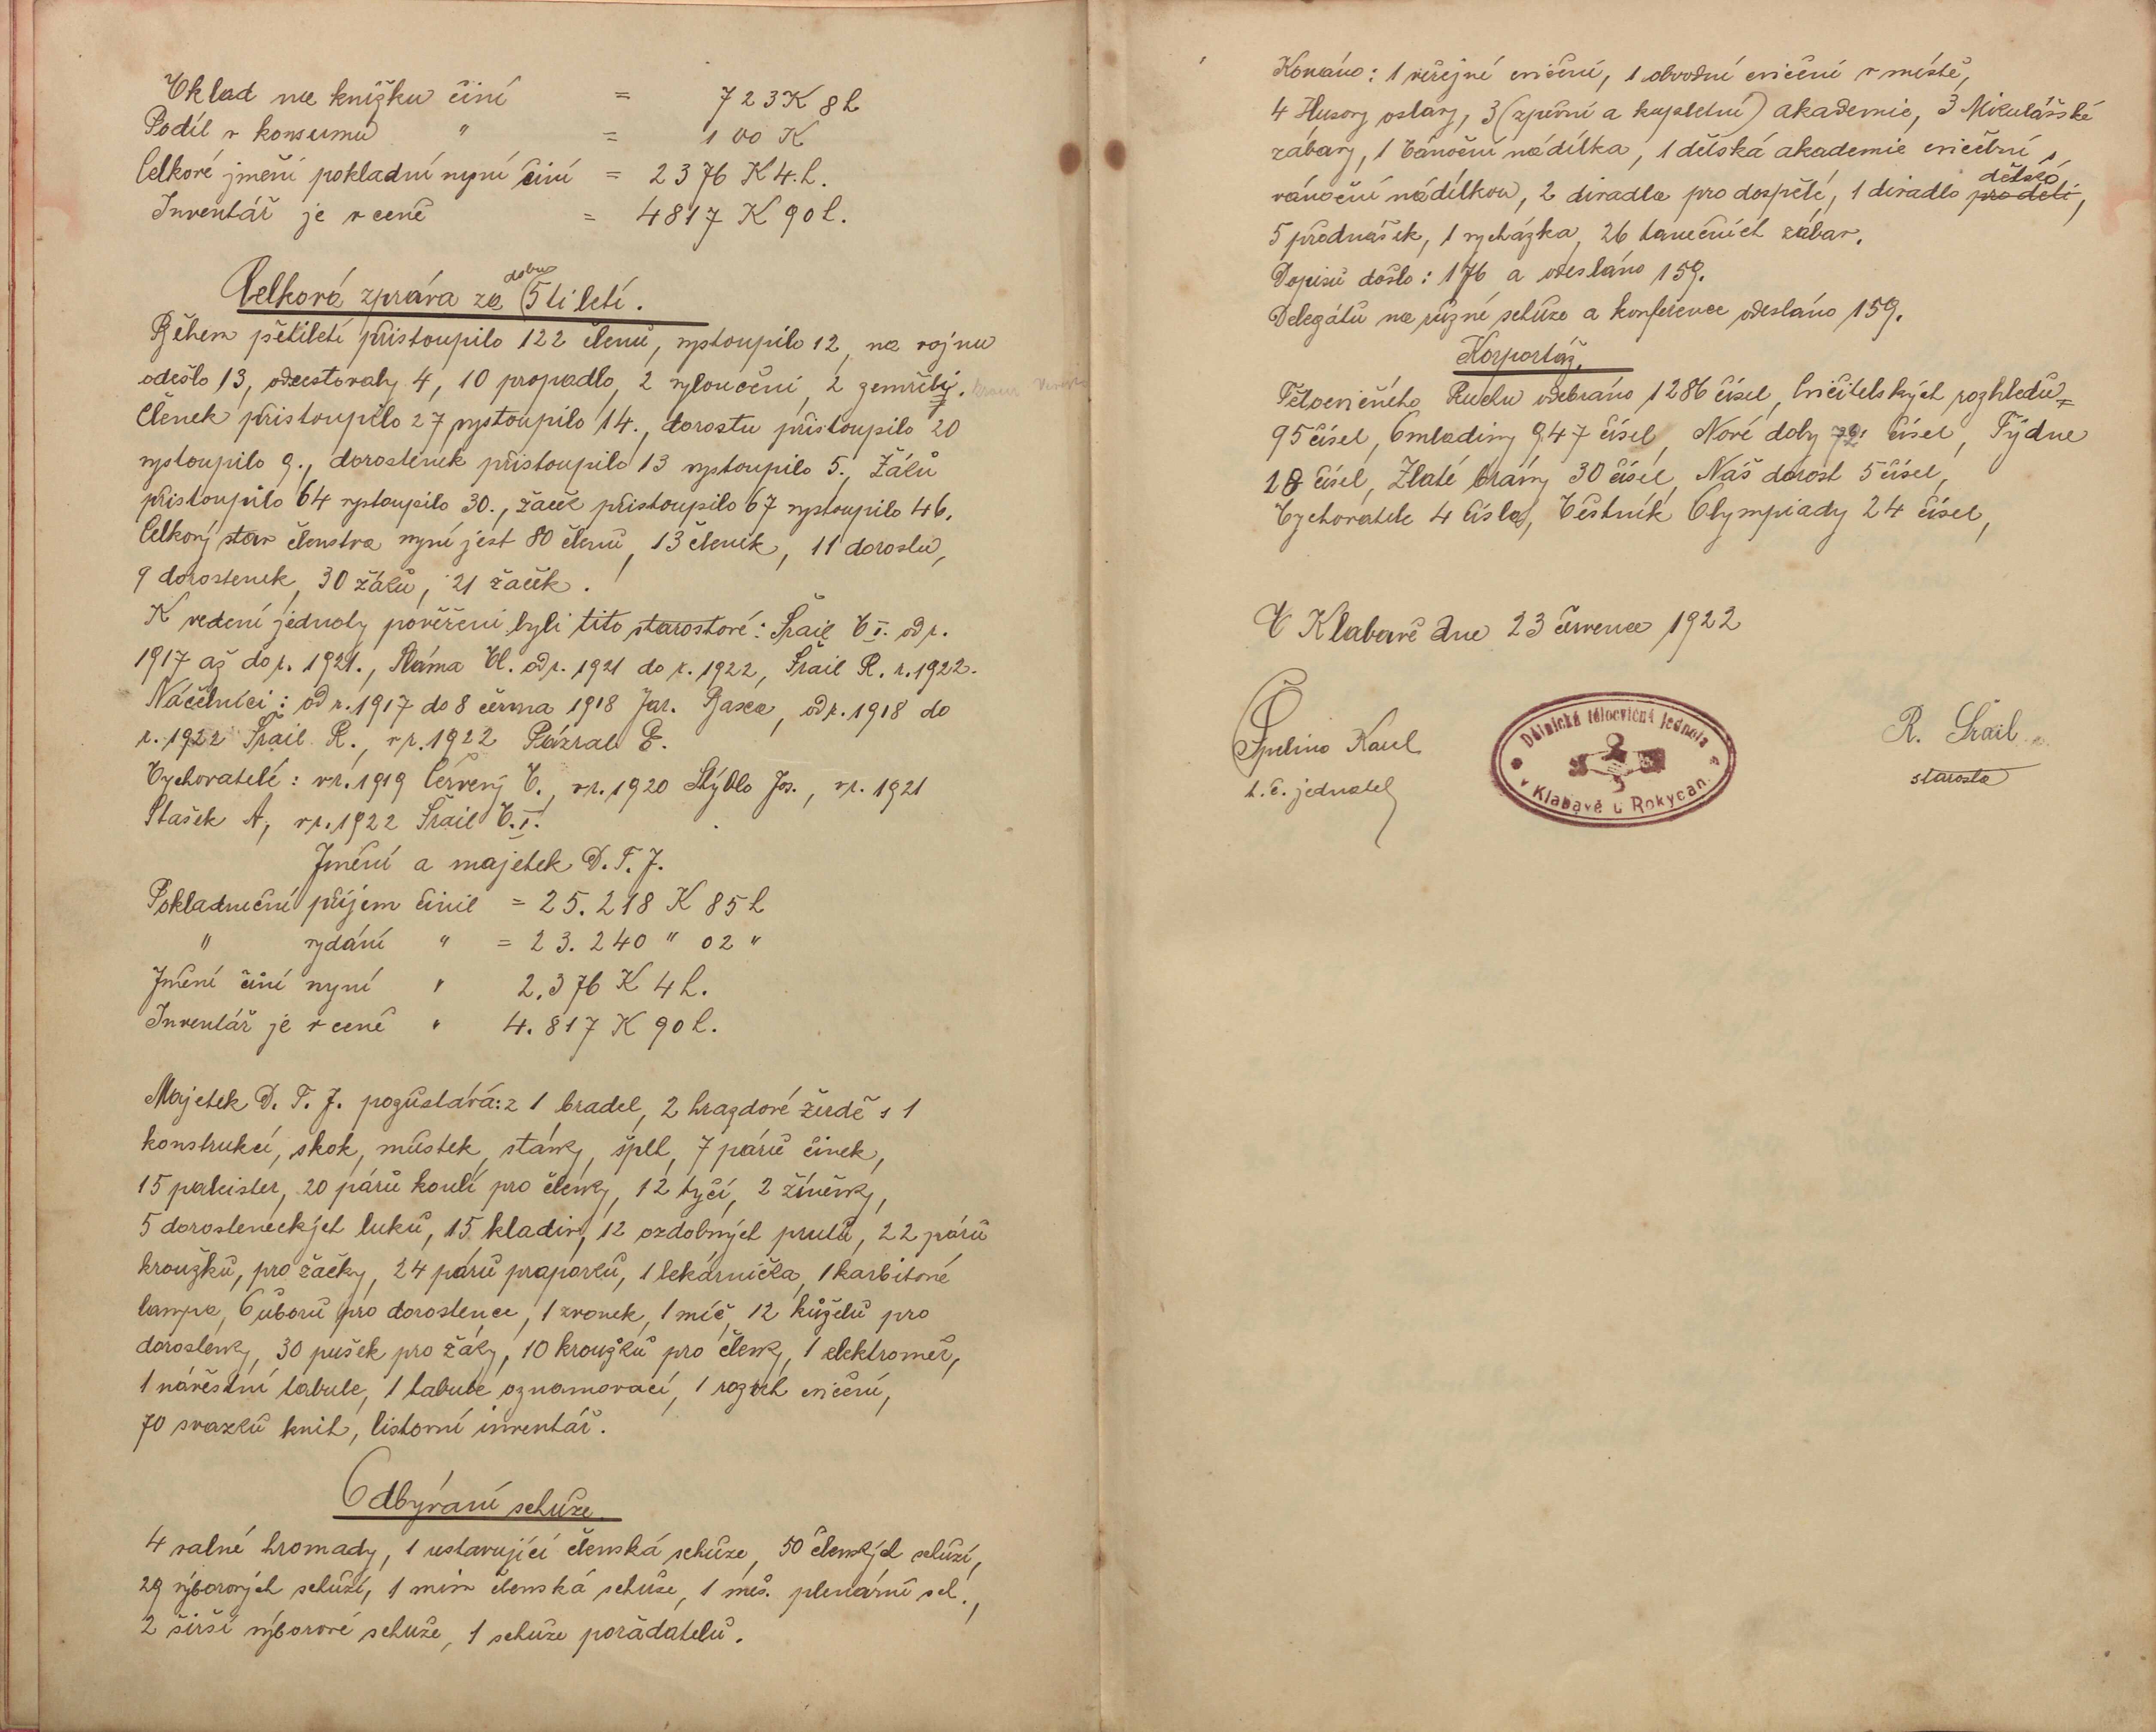 Vklad na knížku činí = 723 K 8 h
Podíl v konsumu " = 100 K
Celkové jmění pokladní nyní činí = 2376 K 4 h.
Inventář je v ceně = 4817 K 90 h.
Celková zpráva za dobu 5ti letí.
Během pětiletí přistoupilo 122 členů, vystoupilo 12, na vojnu
odešlo 13, odcestovaly 4, 10 propadlo, 2 vyloučeni, 2 zemřeli.
Členek přistoupilo 27 vystoupilo 14., dorostu přistoupilo 20
vystoupilo 9., dorostenek přistoupilo 13 vystoupilo 5., Žáků
přistoupilo 64 vystoupilo 30., žaček přistoupilo 67 vystoupilo 46.
Celkový stav členstva nyní jest 80 členů, 13 členek, 11 dorostu,
9 dorostenek, 30 žáků, 21 žaček.
K vedení jednoty pověřeni byli tito starostové: Šrail V. I. od r.
1917 až do r. 1921., Sláma Vl. od r. 1921 do r. 1922, Šrail R. r. 1922.
Náčelníci: od r. 1917 do 8 června 1918 Jar. Basca, od r. 1918 do
r. 1922 Šrail R., v r. 1922 Pázral E.
Vychovatelé: v r. 1919 Červený V., v r. 1920 Stýblo Jos., v r. 1921
Stašek A, v r. 1922 Šrail V. I.
Jmění a majetek D. T. J.
Pokladniční příjem činil = 25.218 K 85 h
" vydání " = 23.240 " 02 "
Jmění činí nyní " 2.376 K 4 h.
Inventář je v ceně " 4.817 K 90 h.
Majetek D. T. J. pozůstává: z 1 bradel, 2 hrazdové žerdě s 1
konstrukcí, skok, můstek, stánky, šplh, 7 párů činek,
15 palcister, 20 párů koulí pro členky, 12 tyčí, 2 žíněnky,
5 dorosteneckých luků, 15 kladiv, 12 ozdobných prutů, 22 párů
kroužků, pro žačky, 24 párů praporků, 1 lekárnička, 1 karbitové
lampa, 6 úborů pro dorostence, 1 zvonek, 1 míč, 12 kůželů pro
dorostenky, 30 pušek pro žáky, 10 kroužků pro členky, 1 elektroměr,
1 návěstní tabule, 1 tabule oznamovací, 1 rozvrh cvičení,
70 svazků knih, listovní inventář.
Odbývaní schůze
4 valné hromady, 1 ustavující členská schůze, 50 členských schůzí,
29 výborových schůzí, 1 mim členská schůze, 1 měs. plenární sch.,
2 širší výborové schůze, 1 schůze pořadatelů.
Konáno: 1 veřejné cvičení, 1 obvodní cvičení v místě,
4 Husovy oslavy, 3 (zpěvní a kupletní) akademie, 3 Mikulášské
zábavy, 1 Vánoční nádílka, 1 dětská akademie cvičební s
vánoční nádílkou, 2 divadla pro dospělé, 1 divadlo pro děti dětské,
5 přednášek, 1 vycházka, 26 tanečních zábav.
Dopisů došlo: 176 a odesláno 159.
Delegátů na různé schůze a konference odesláno 159.
Korportáž.
Tělocvičného Ruchu odebráno 1286 čísel, Cvičitelských rozhledů
95 čísel, Omladiny 947 čísel, Nové doby čísel, Týdne
18 čísel, Zlaté brány 30 čísel, Náš dorost 5 čísel,
Vychovatele 4 čísla, Věstník Olympiady 24 čísel,
V Klabavě dne 23 července 1922
Špelina Karel
t. č. jednatel
Dělnická tělocvičná jednota
v Klabavě u Rokycan.
R. Šrail
starosta